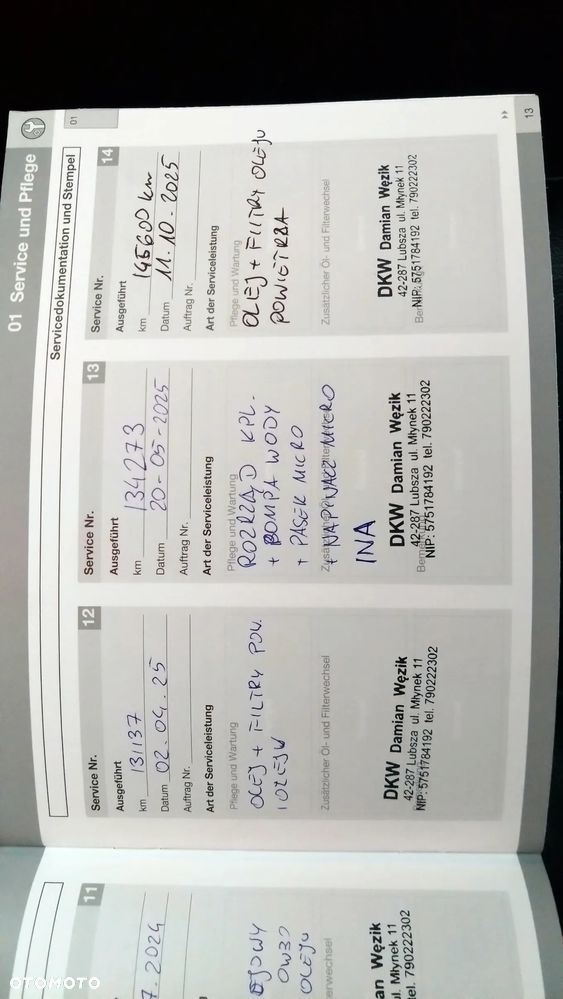 01 Service und Pflege
01
Servicedokumentation und Stempel
Service Nr.
11
7.2024
OW30
OLEJU
erwechsel
DKW Damian Węzik
ul. Młynek 11
tel. 790222302
Service Nr.
12
Ausgeführt
km 131137
Datum 02.04.25
Auftrag Nr.
Art der Serviceleistung
Pflege und Wartung
OLEJ + FILTRY POW.
I OLEJU
Zusätzlicher Öl- und Filterwechsel
DKW Damian Węzik
42-287 Lubsza ul. Młynek 11
NIP: 5751784192 tel. 790222302
Service Nr.
13
Ausgeführt
km 134273
Datum 20-05-2025
Auftrag Nr.
Art der Serviceleistung
Pflege und Wartung
ROZRZĄD KPL.
+ POMPA WODY
+ PASEK MICRO
+ NAPINACZ MICRO
INA
DKW Damian Węzik
42-287 Lubsza ul. Młynek 11
NIP: 5751784192 tel. 790222302
Service Nr.
14
Ausgeführt
km 145600 km
Datum 11.10.2025
Auftrag Nr.
Art der Serviceleistung
Pflege und Wartung
OLEJ + FILTRY OLEJU
POWIETRZA
Zusätzlicher Öl- und Filterwechsel
DKW Damian Węzik
42-287 Lubsza ul. Młynek 11
NIP: 5751784192 tel. 790222302
13
OTOMOTO